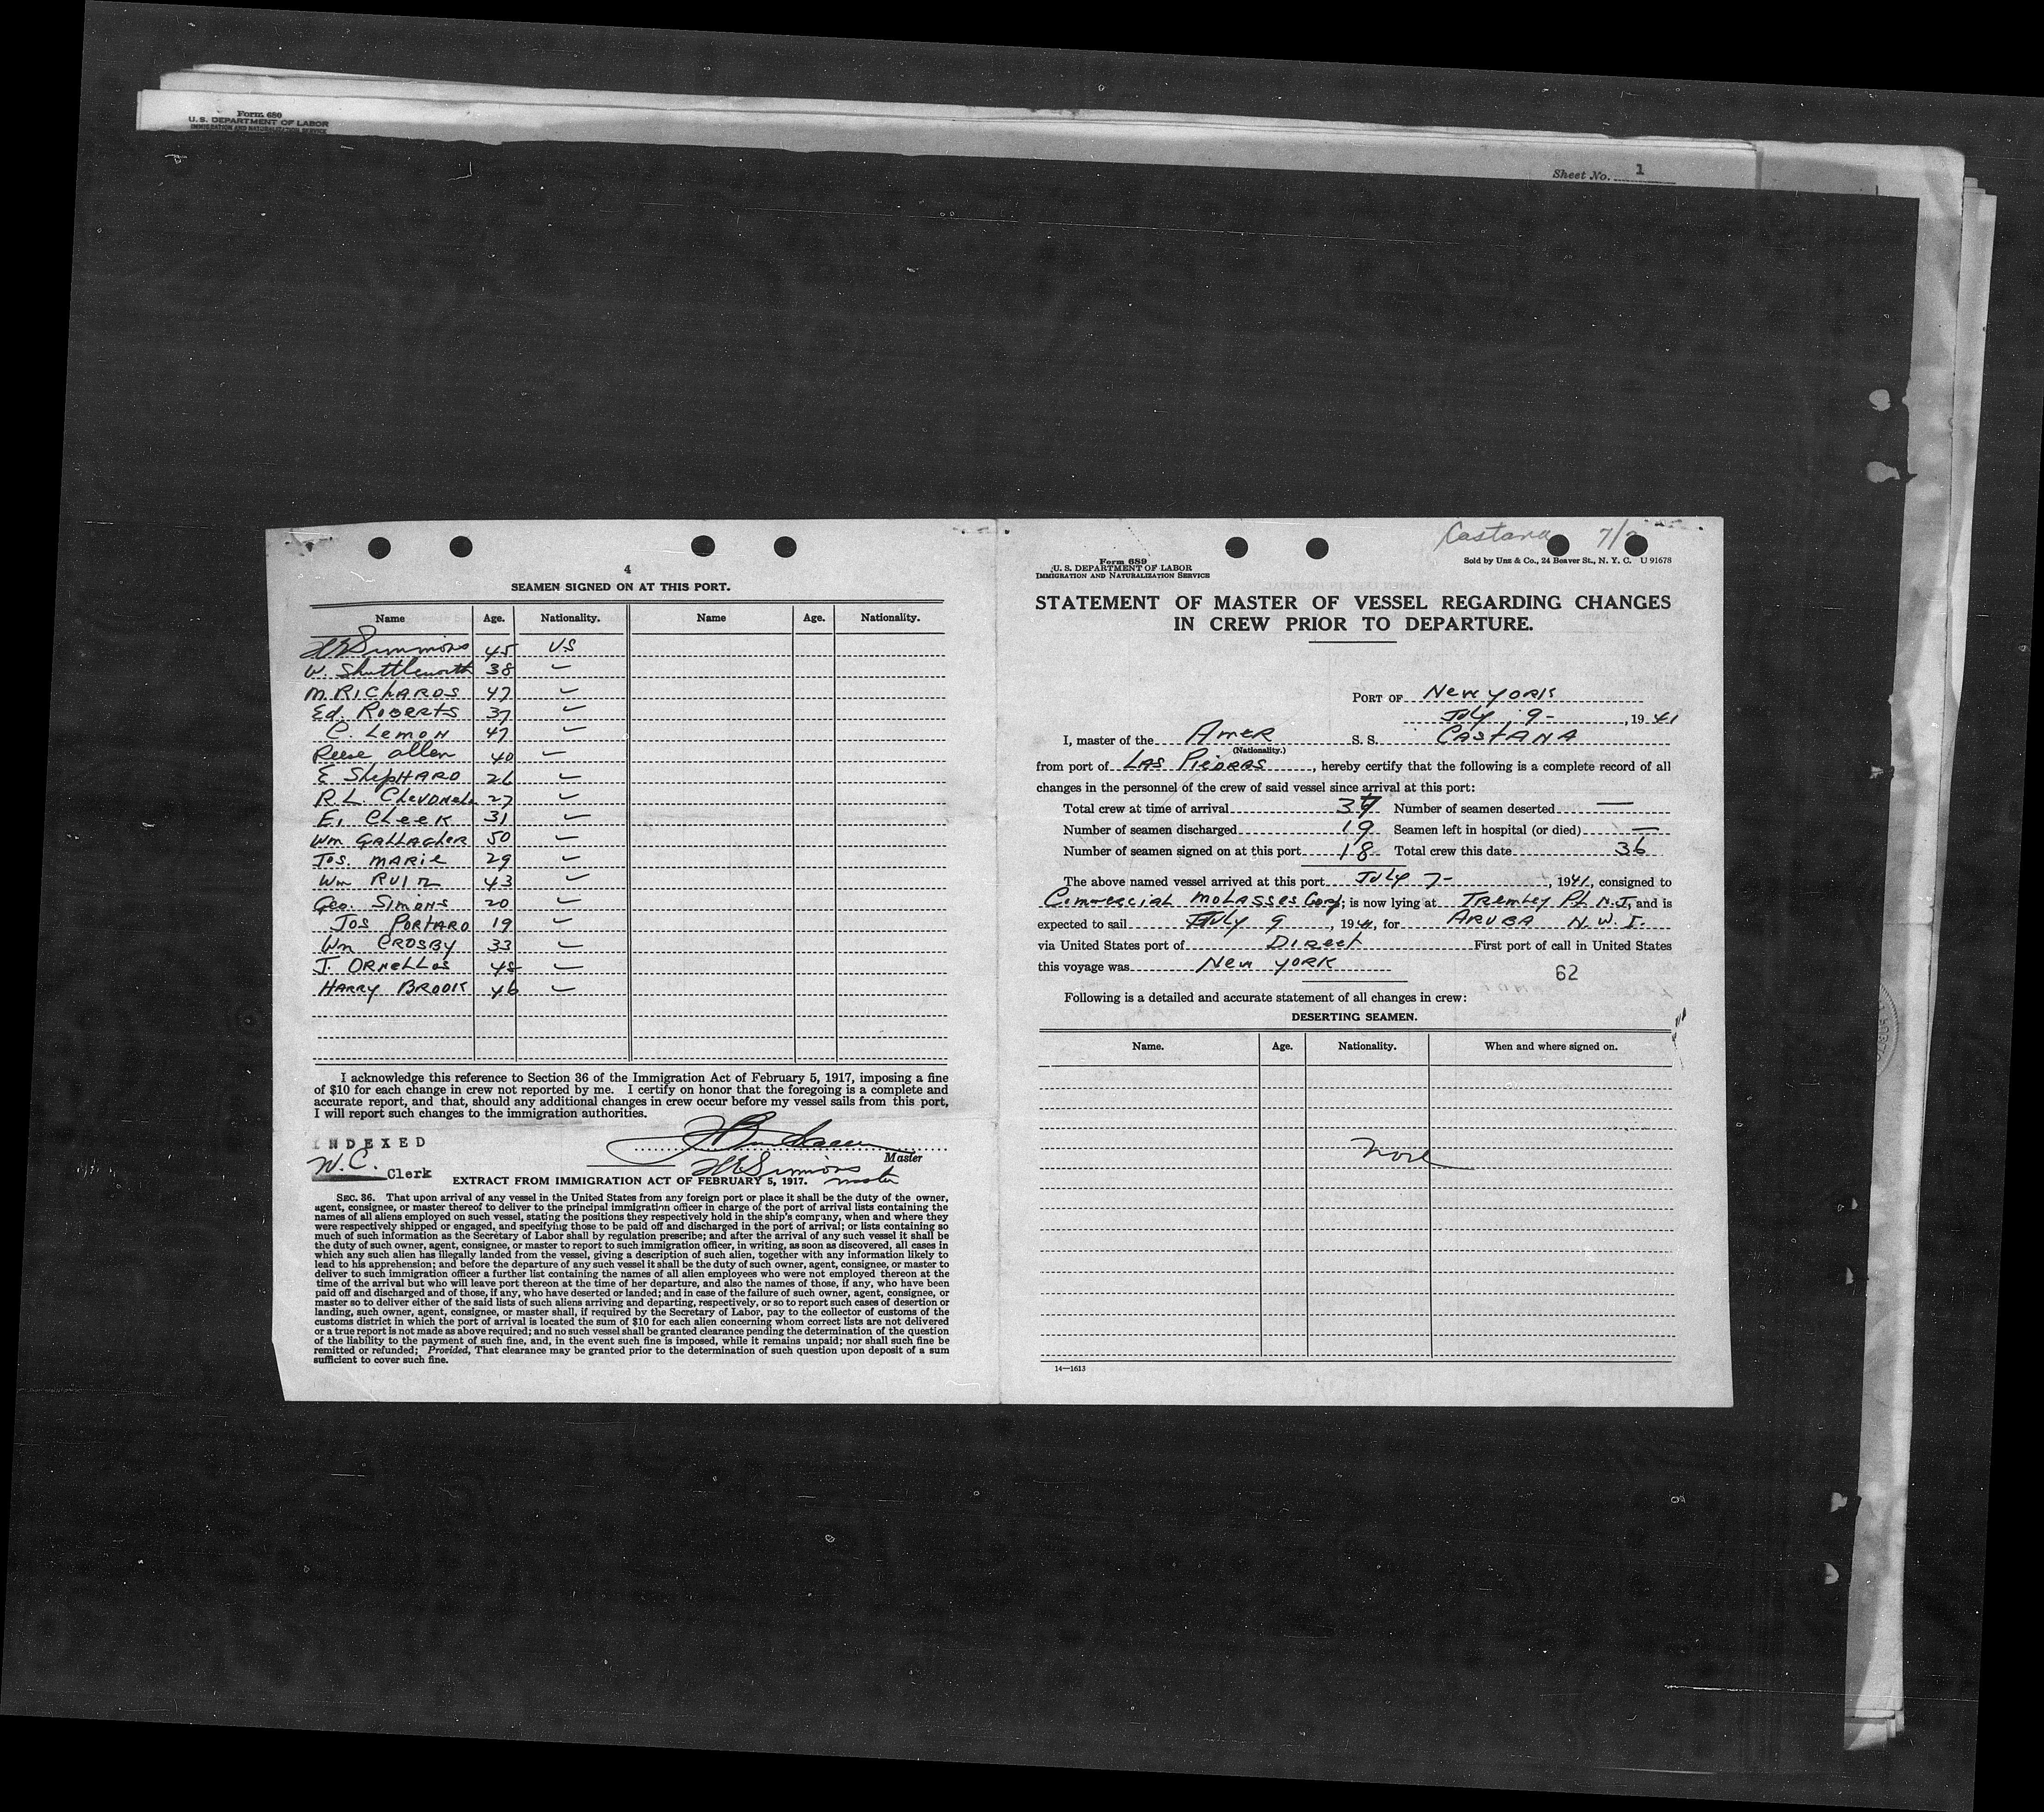 Form 680
U. S. DEPARTMENT OF LABOR
IMMIGRATION AND NATURALIZATION SERVICE
Sheet No. 1
4
SEAMEN SIGNED ON AT THIS PORT.
Name Age. Nationality. Name Age. Nationality.
Simmons 45 US
W. Shuttleworth 38
M. RICHARDS 47
Ed. ROBERTS 37
C. LEMON 47
Reese Allen 40
E SHEPHARD 26
R. L. 27
E. CLEEK 31
Wm GALLAGHER 50
Jos. MARIE 29
Wm RUIZ 43
Geo. SIMONS 20
JOS PORTARO 19
Wm CROSBY 33
J. ORNELLOS 45
HARRY BROOK 46
I acknowledge this reference to Section 36 of the Immigration Act of February 5, 1917, imposing a fine
of $10 for each change in crew not reported by me. I certify on honor that the foregoing is a complete and
accurate report, and that, should any additional changes in crew occur before my vessel sails from this port,
I will report such changes to the immigration authorities.
INDEXED
W.C. Clerk
Master
Simmons
master
EXTRACT FROM IMMIGRATION ACT OF FEBRUARY 5, 1917.
SEC. 36. That upon arrival of any vessel in the United States from any foreign port or place it shall be the duty of the owner,
agent, consignee, or master thereof to deliver to the principal immigration officer in charge of the port of arrival lists containing the
names of all aliens employed on such vessel, stating the positions they respectively hold in the ship's company, when and where they
were respectively shipped or engaged, and specifying those to be paid off and discharged in the port of arrival; or lists containing so
much of such information as the Secretary of Labor shall by regulation prescribe; and after the arrival of any such vessel it shall be
the duty of such owner, agent, consignee, or master to report to such immigration officer, in writing, as soon as discovered, all cases in
which any such alien has illegally landed from the vessel, giving a description of such alien, together with any information likely to
lead to his apprehension; and before the departure of any such vessel it shall be the duty of such owner, agent, consignee, or master to
deliver to such immigration officer a further list containing the names of all alien employees who were not employed thereon at the
time of the arrival but who will leave port thereon at the time of her departure, and also the names of those, if any, who have been
paid off and discharged and of those, if any, who have deserted or landed; and in case of the failure of such owner, agent, consignee, or
master so to deliver either of the said lists of such aliens arriving and departing, respectively, or so to report such cases of desertion or
landing, such owner, agent, consignee, or master shall, if required by the Secretary of Labor, pay to the collector of customs of the
customs district in which the port of arrival is located the sum of $10 for each alien concerning whom correct lists are not delivered
or a true report is not made as above required; and no such vessel shall be granted clearance pending the determination of the question
of the liability to the payment of such fine, and, in the event such fine is imposed, while it remains unpaid; nor shall such fine be
remitted or refunded; Provided, That clearance may be granted prior to the determination of such question upon deposit of a sum
sufficient to cover such fine.
Castana 7/
Form 689
U. S. DEPARTMENT OF LABOR
IMMIGRATION AND NATURALIZATION SERVICE
Sold by Unz & Co., 24 Beaver St., N. Y. C. U 91678
STATEMENT OF MASTER OF VESSEL REGARDING CHANGES
IN CREW PRIOR TO DEPARTURE.
PORT OF New YORK
July 9-, 1941
I, master of the AMER S. S. CASTANA
(Nationality.)
from port of LAS PIEDRAS, hereby certify that the following is a complete record of all
changes in the personnel of the crew of said vessel since arrival at this port:
Total crew at time of arrival 37 Number of seamen deserted —
Number of seamen discharged 19 Seamen left in hospital (or died) —
Number of seamen signed on at this port 18 Total crew this date 36
The above named vessel arrived at this port JULY 7-, 1941, consigned to
Commercial MOLASSES Corp, is now lying at TREMLEY Pt. N.J, and is
expected to sail July 9, 1941, for ARUBA N.W.I.
via United States port of DIRECT First port of call in United States
this voyage was New YORK
62
Following is a detailed and accurate statement of all changes in crew:
DESERTING SEAMEN.
Name. Age. Nationality. When and where signed on.
None
14—1613